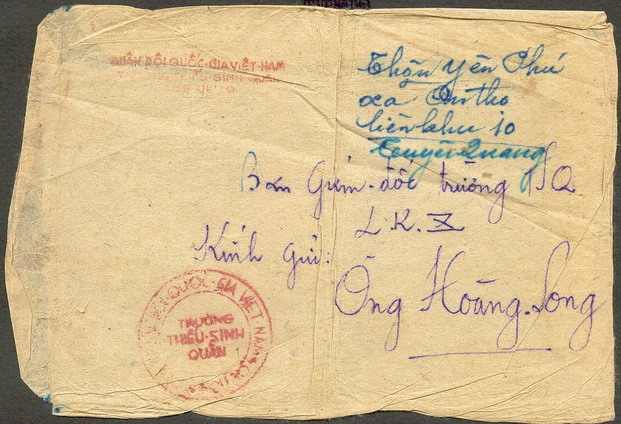 QUÂN ĐỘI QUỐC-GIA VIỆT-NAM
Thôn Yên Phú
xa
liên khu 10
Tuyên Quang
Ban Giám-đốc trường
L.K.X
Kính gửi:
Ông Hoàng-Long
QUỐC-GIA VIỆT NAM
TRƯỜNG
THIẾU-SINH
QUÂN